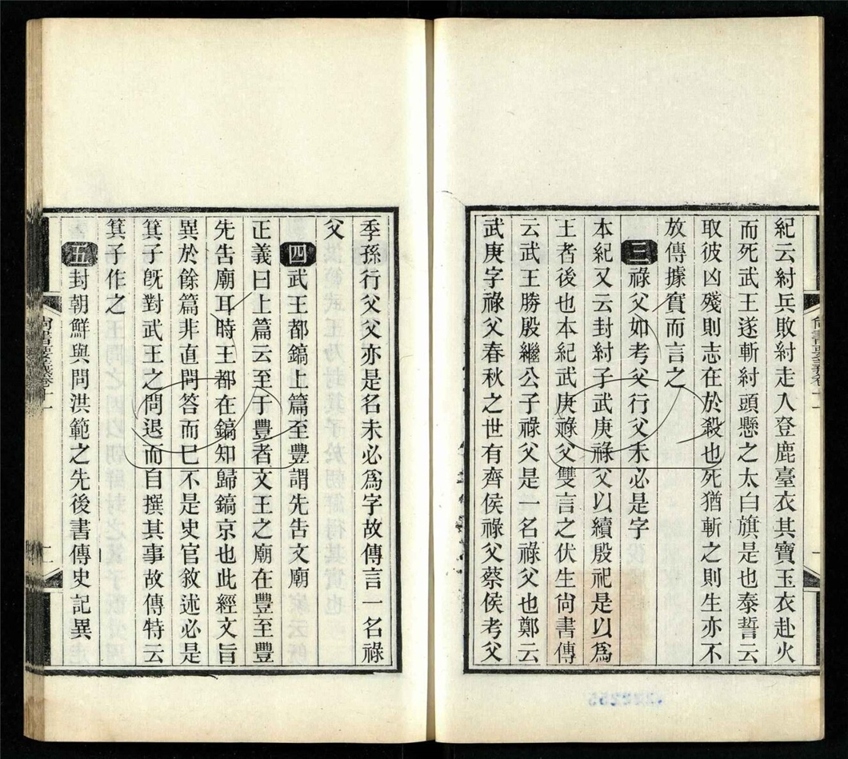 紀云紂兵敗紂走入登鹿臺衣其寶玉衣赴火
而死武王遂斬紂頭懸之太白旗是也泰誓云
取彼凶殘則志在於殺也死猶斬之則生亦不
放傳據實而言之
三祿父如考父行父未必是字
本紀又云封紂子武庚祿父以續殷祀是以爲
王者後也本紀武庚祿父雙言之伏生尙書傳
云武王勝殷繼公子祿父是一名祿父也鄭云
武庚字祿父春秋之世有齊侯祿父蔡侯考父
季孫行父父亦是名未必爲字故傳言一名祿
父
四武王都鎬上篇至豐謂先告文廟
正義曰上篇云至于豐者文王之廟在豐至豐
先告廟耳時王都在鎬知歸鎬京也此經文旨
異於餘篇非直問答而已不是史官敘述必是
箕子旣對武王之問退而自撰其事故傳特云
箕子作之
五封朝鮮與問洪範之先後書傳史記異
尙書要義卷十一
二